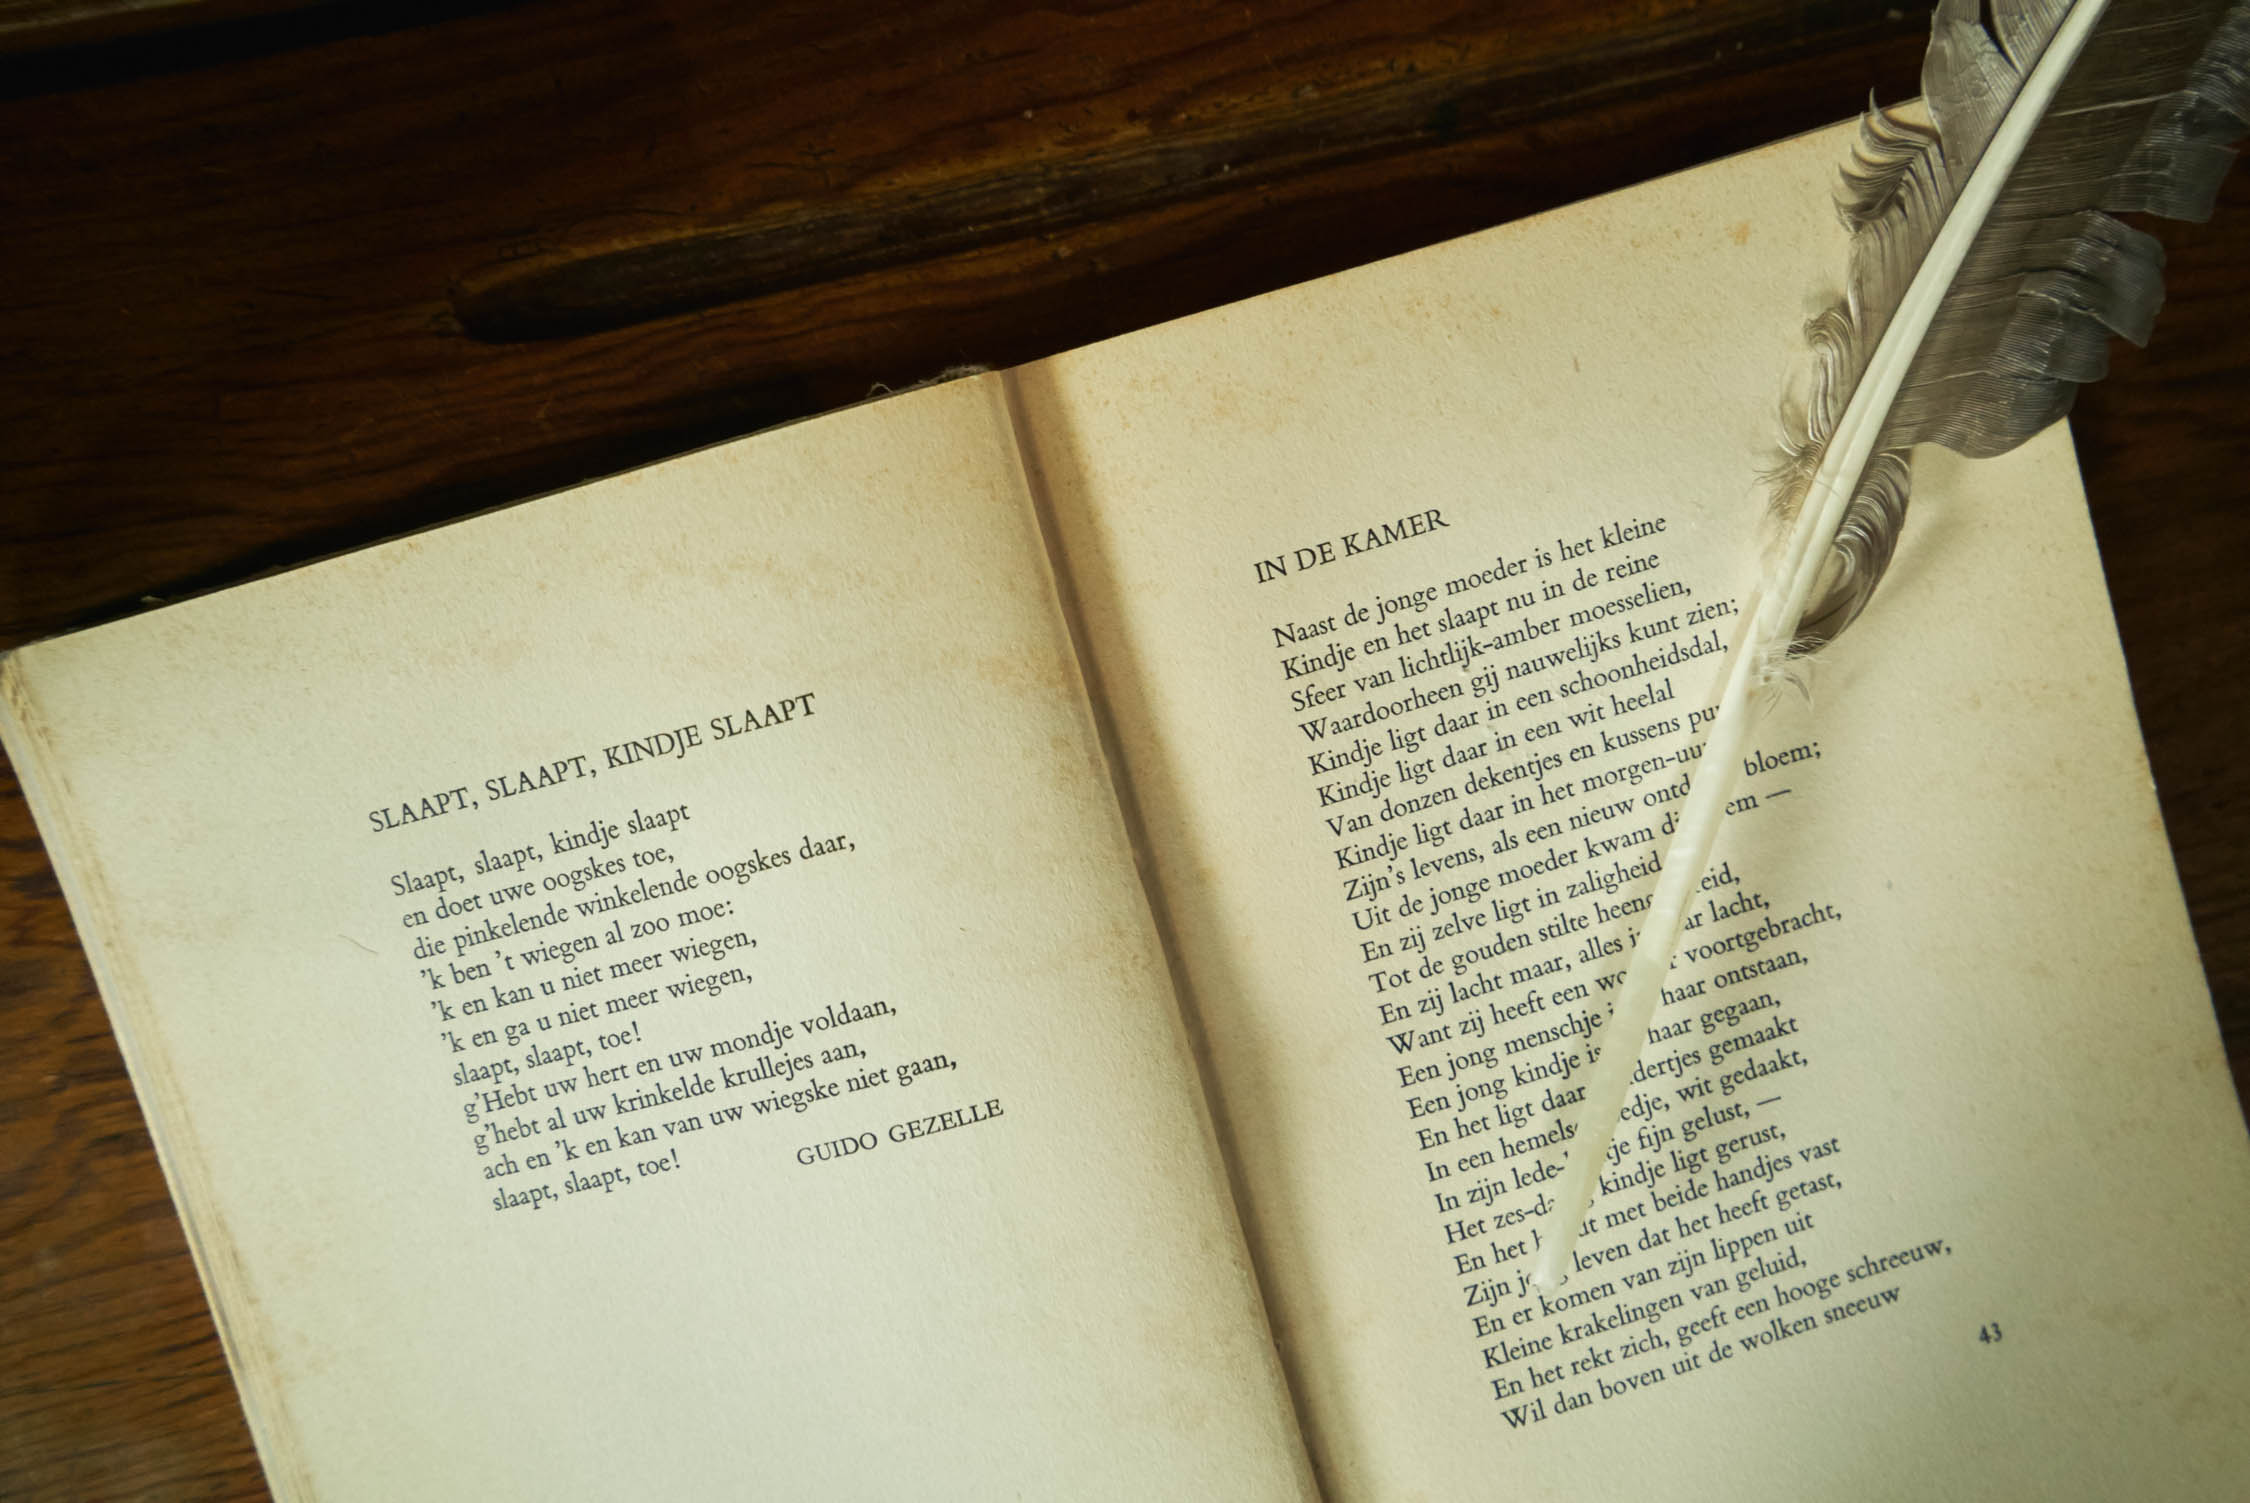 SLAAPT, SLAAPT, KINDJE SLAAPT
Slaapt, slaapt, kindje slaapt
en doet uwe oogskes toe,
die pinkelende winkelende oogskes daar,
'k ben 't wiegen al zoo moe:
'k en kan u niet meer wiegen,
'k en ga u niet meer wiegen,
slaapt, slaapt, toe!
g'Hebt uw hert en uw mondje voldaan,
g'hebt al uw krinkelde krullejes aan,
ach en 'k en kan van uw wiegske niet gaan,
slaapt, slaapt, toe!
GUIDO GEZELLE
IN DE KAMER
Naast de jonge moeder is het kleine
Kindje en het slaapt nu in de reine
Sfeer van lichtlijk-amber moesselien,
Waardoorheen gij nauwelijks kunt zien;
Kindje ligt daar in een schoonheidsdal,
Kindje ligt daar in een wit heelal
Van donzen dekentjes en kussens
Kindje ligt daar in het
Zijn's levens, als een nieuw bloem;
Uit de jonge moeder kwam —
En zij zelve ligt in zaligheid
Tot de gouden stilte
En zij lacht maar, alles lacht,
Want zij heeft een voortgebracht,
Een jong menschje haar ontstaan,
Een jong kindje is haar gegaan,
En het ligt daar gemaakt
In een wit gedaakt,
In zijn fijn gelust, —
Het kindje ligt gerust,
En het met beide handjes vast
Zijn leven dat het heeft getast,
En er komen van zijn lippen uit
Kleine krakelingen van geluid,
En het rekt zich, geeft een hooge schreeuw,
Wil dan boven uit de wolken sneeuw
43